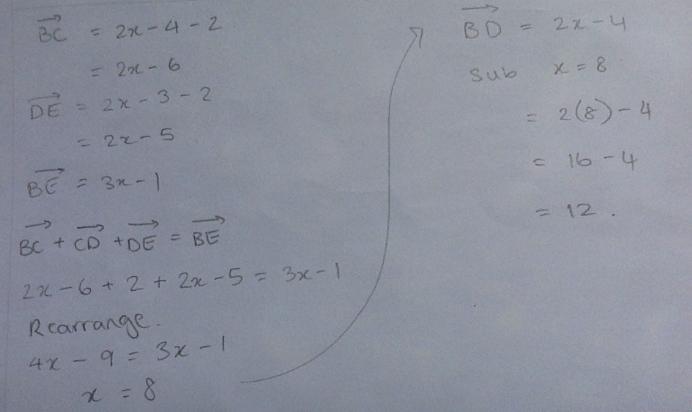 BC→ = 2x - 4 - 2
= 2x - 6
DE→ = 2x - 3 - 2
= 2x - 5
BE→ = 3x - 1
BC→ + CD→ + DE→ = BE→
2x - 6 + 2 + 2x - 5 = 3x - 1
Rearrange.
4x - 9 = 3x - 1
x = 8
BD→ = 2x - 4
Sub x = 8
= 2(8) - 4
= 16 - 4
= 12.